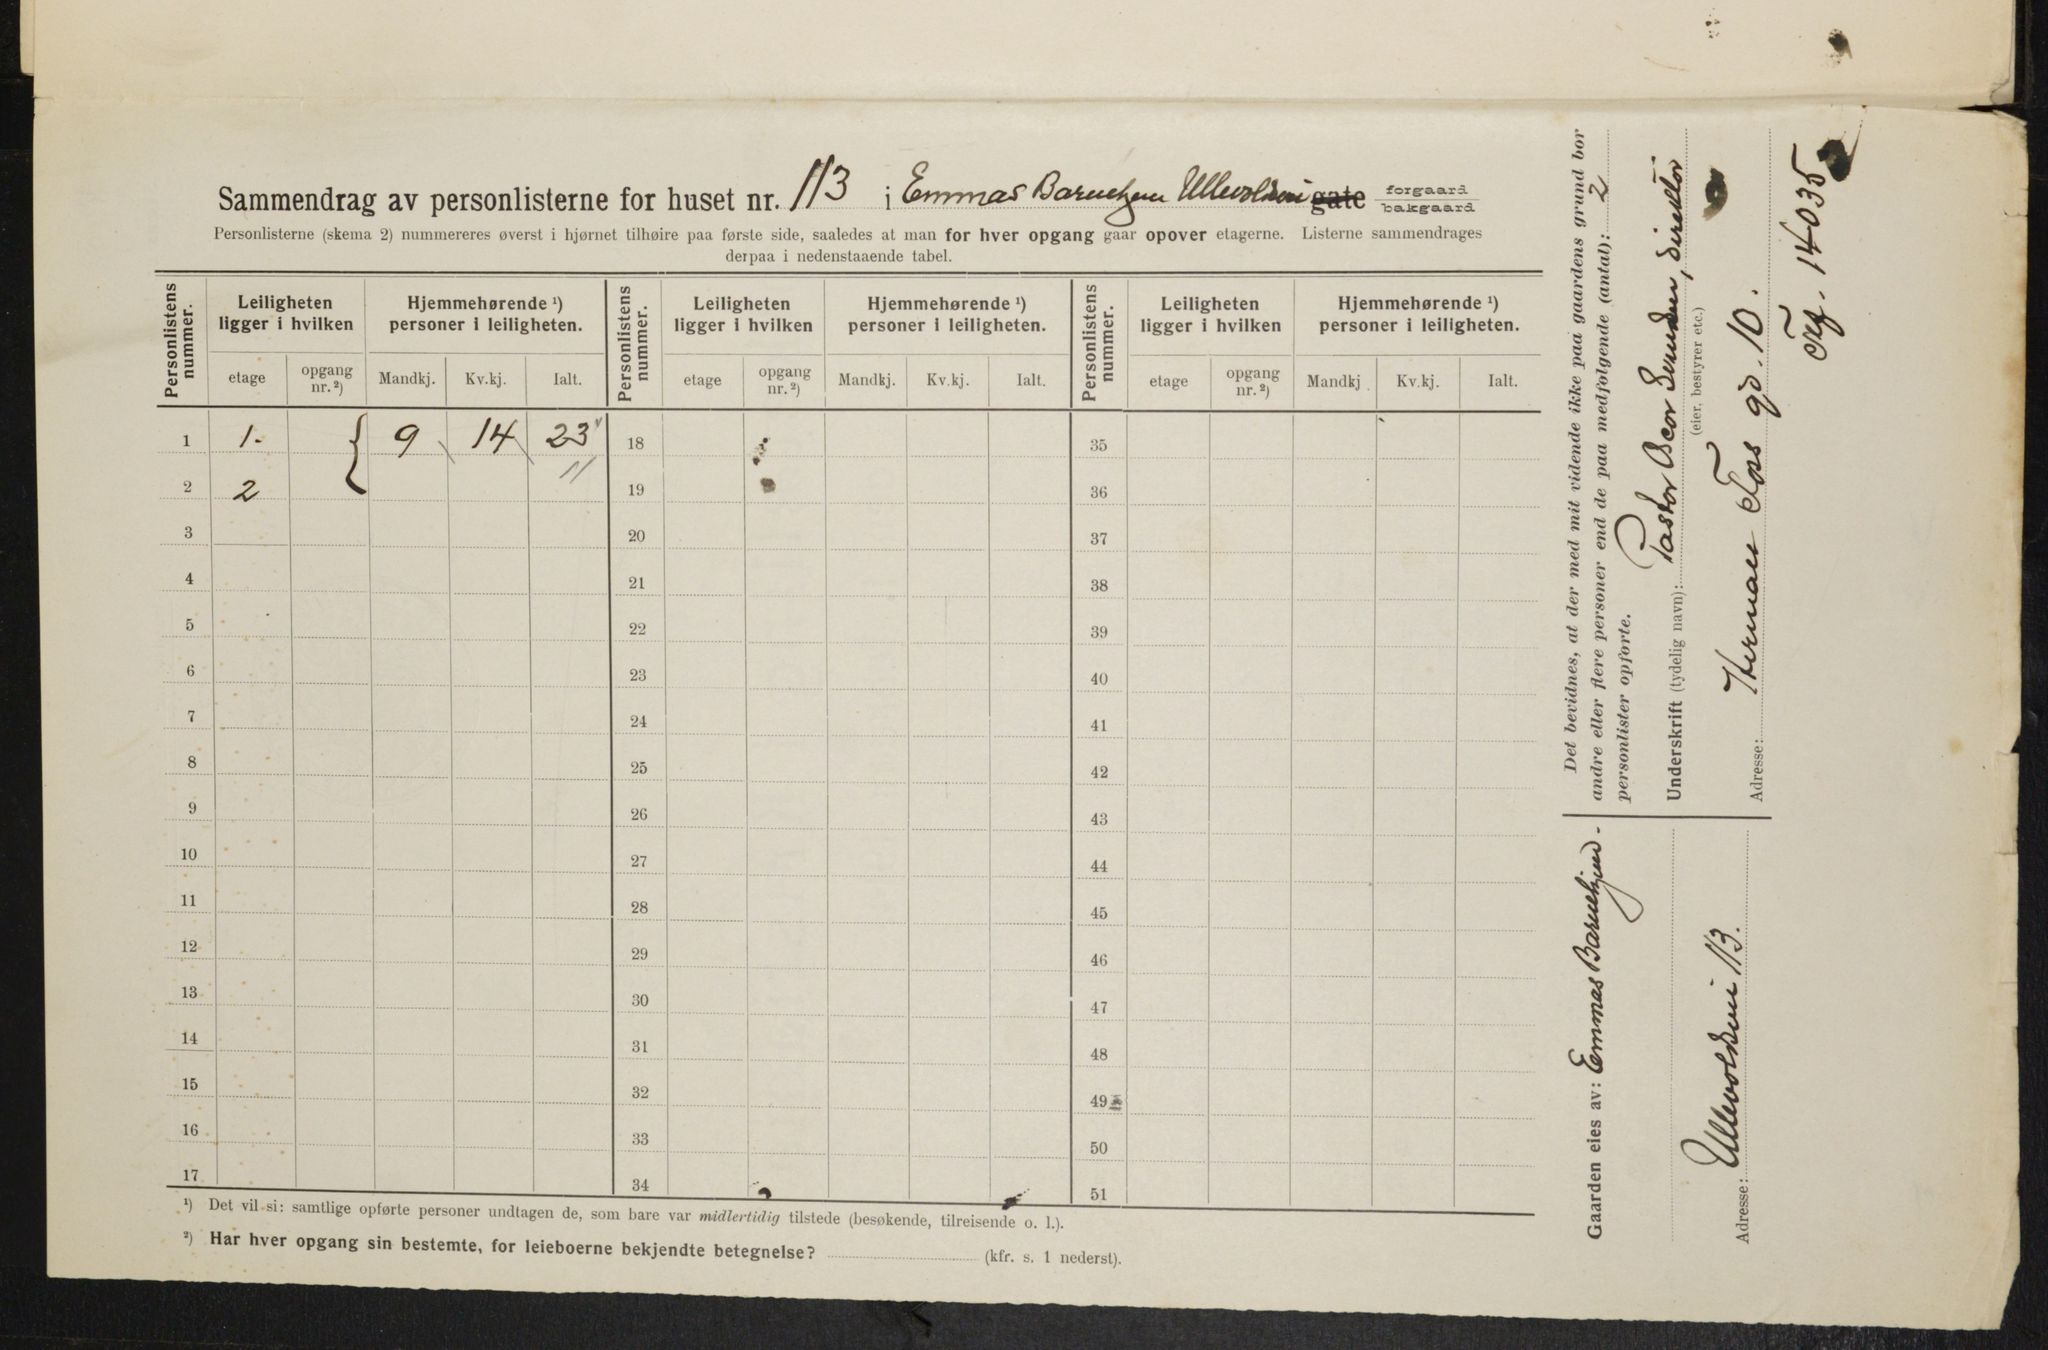 Sammendrag av personlisterne for huset nr. 113 i Emmas Barnehjem Ullevoldsvei gate forgaard bakgaard
Personlisterne (skema 2) nummereres øverst i hjørnet tilhøire paa første side, saaledes at man for hver opgang gaar opover etagerne. Listerne sammendrages
derpaa i nedenstaaende tabel.
Personlistens nummer. Leiligheten ligger i hvilken Hjemmehørende ¹) personer i leiligheten. Personlistens nummer. Leiligheten ligger i hvilken Hjemmehørende ¹) personer i leiligheten. Personlistens nummer. Leiligheten ligger i hvilken Hjemmehørende ¹) personer i leiligheten.
etage opgang nr. ²) Mandkj. Kv.kj. Ialt. etage opgang nr. ²) Mandkj. Kv.kj. Ialt. etage opgang nr. ²) Mandkj Kv.kj. Ialt.
1 1. 9 14 23 18 35
2 2 11 19 36
3 20 37
4 21 38
5 22 39
6 23 40
7 24 41
8 25 42
9 26 43
10 27 44
11 28 45
12 29 46
13 30 47
14 31 48
15 32 49
16 33 50
17 34 51
¹) Det vil si: samtlige opførte personer undtagen de, som bare var midlertidig tilstede (besøkende, tilreisende o. l.).
²) Har hver opgang sin bestemte, for leieboerne bekjendte betegnelse? (kfr. s. 1 nederst).
Det bevidnes, at der med mit vidende ikke paa gaardens grund bor
andre eller flere personer end de paa medfølgende (antal): 2
personlister opførte.
Underskrift (tydelig navn): Pastor Oscar direktør
(eier, bestyrer etc.)
Adresse: Herman Foss gd. 10.
Tlf. 14035
Gaarden eies av: Emmas Barnehjem.
Adresse: Ullevoldsvei 113.